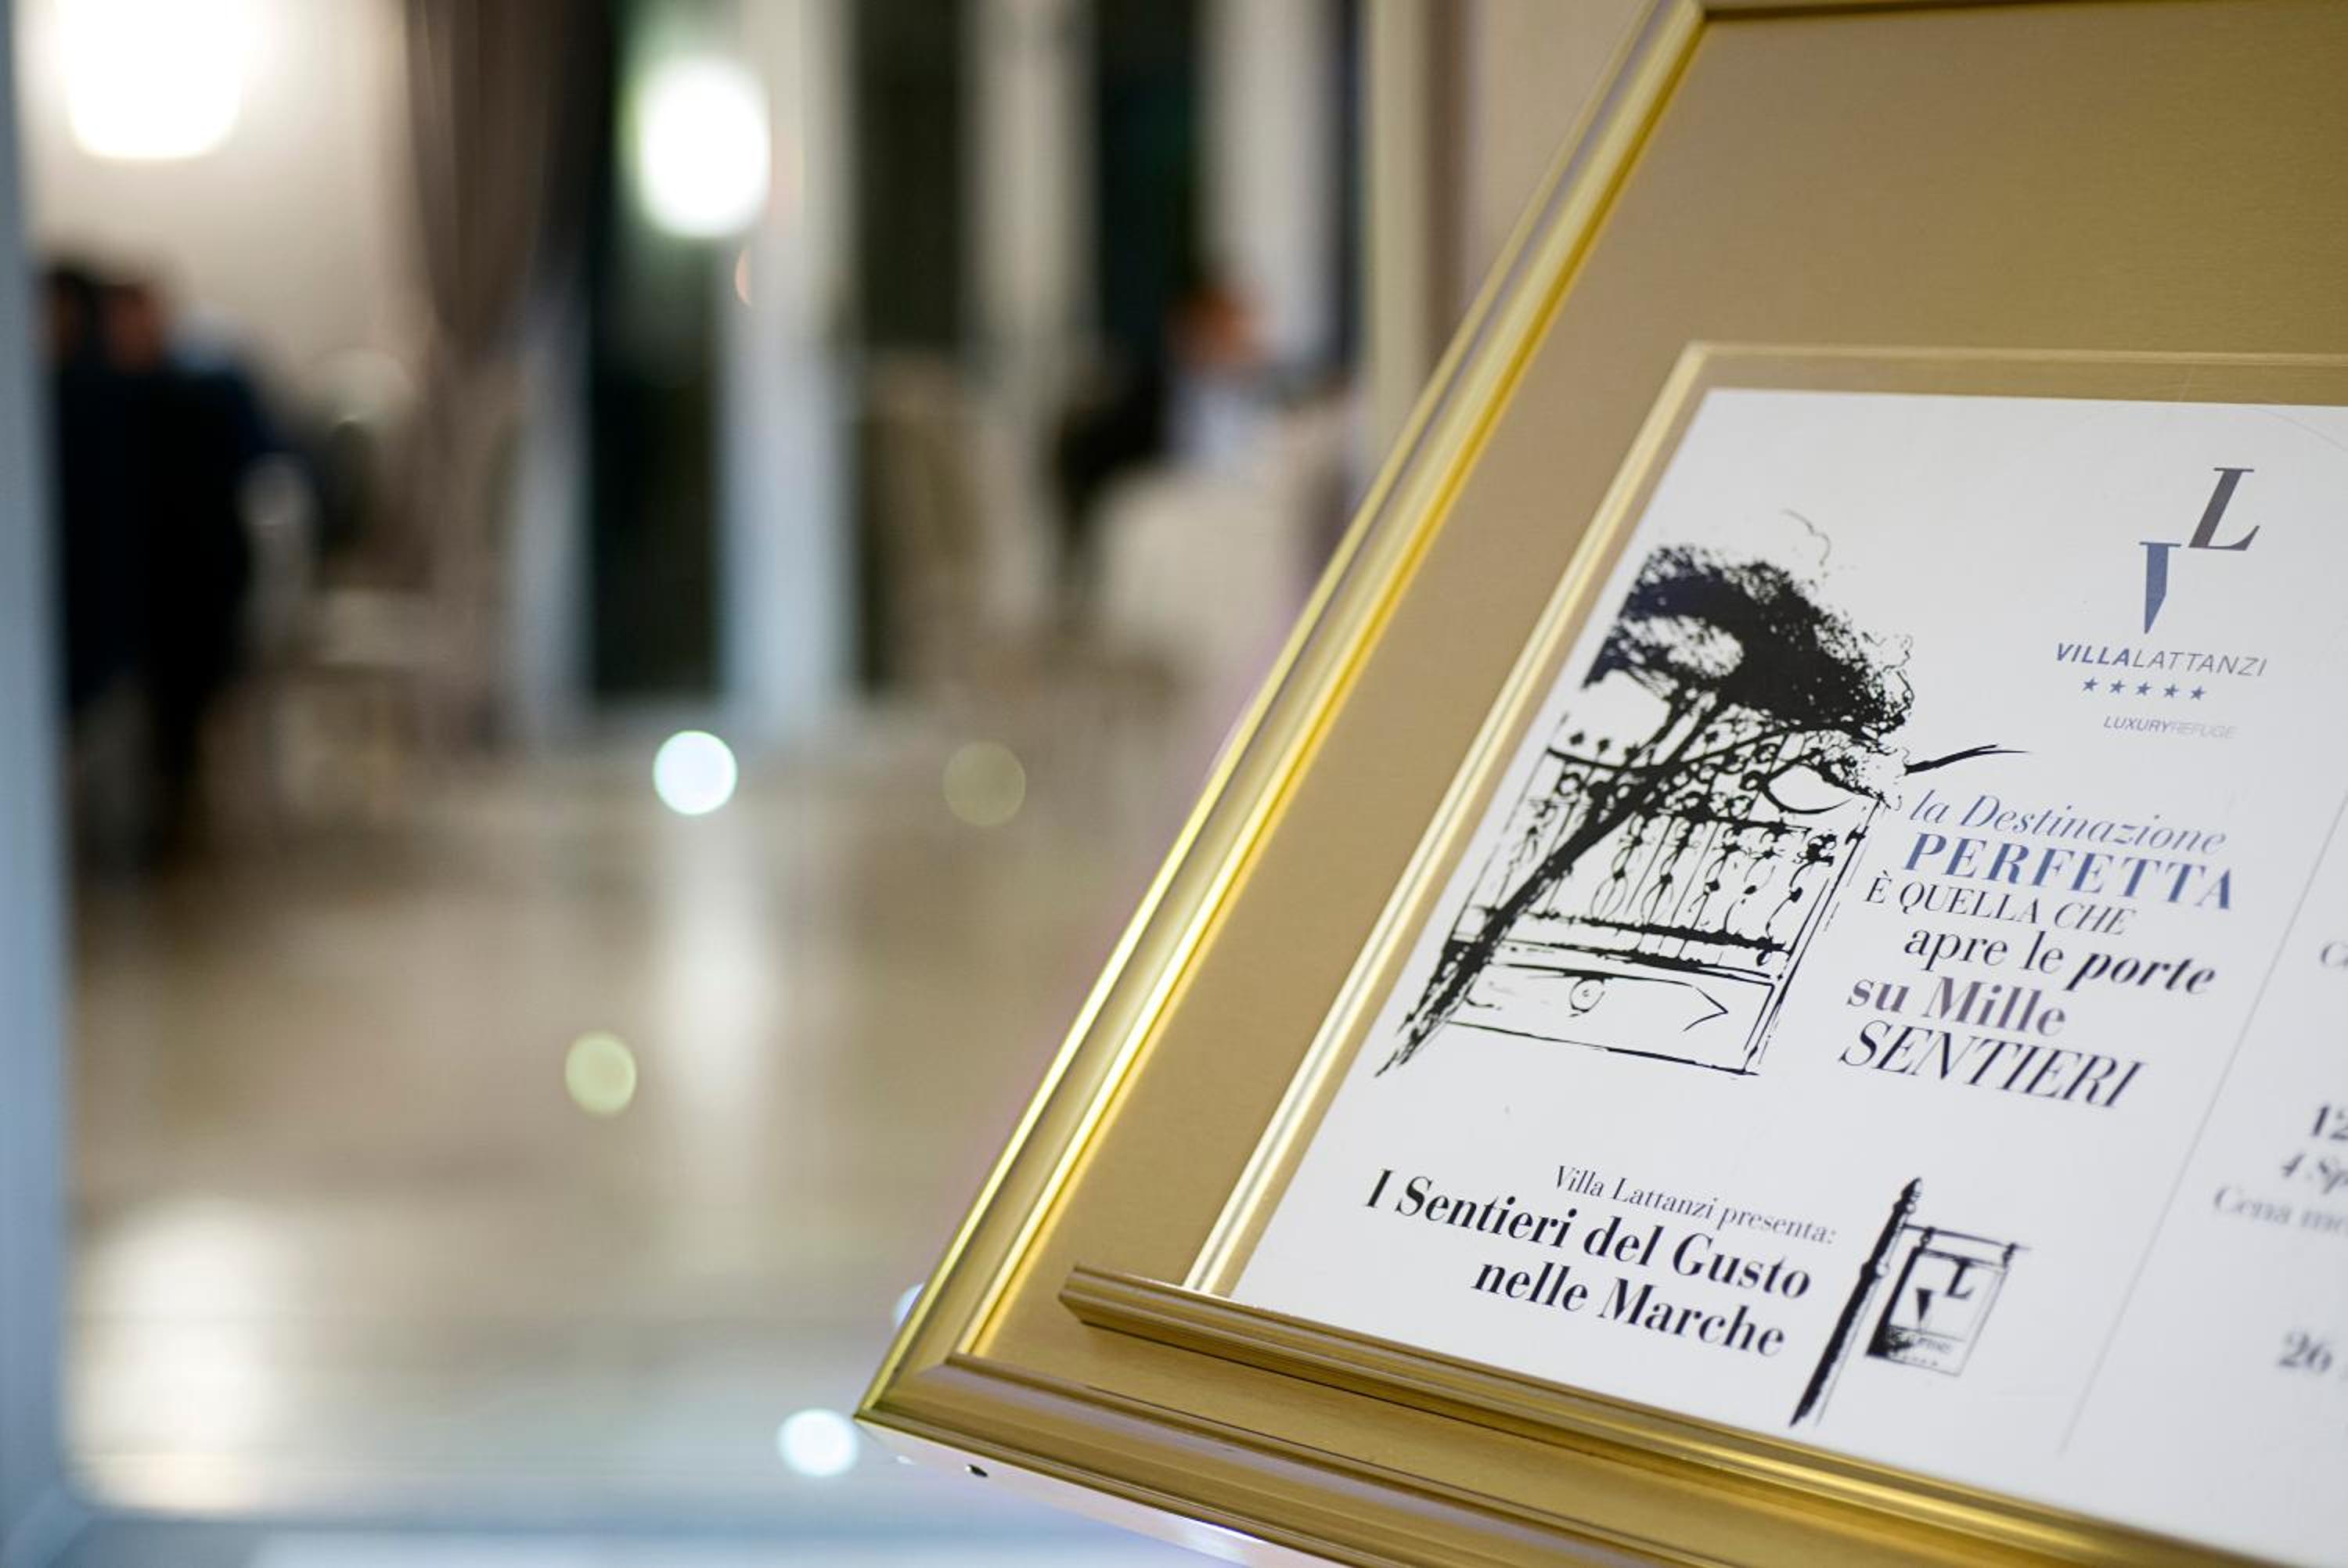 L
V
VILLALATTANZI
★★★★★
LUXURYREFUGE
la Destinazione
PERFETTA
È QUELLA CHE
apre le porte
su Mille
SENTIERI
Villa Lattanzi presenta:
I Sentieri del Gusto
nelle Marche
L
V
12
4 Sp
Cena
20